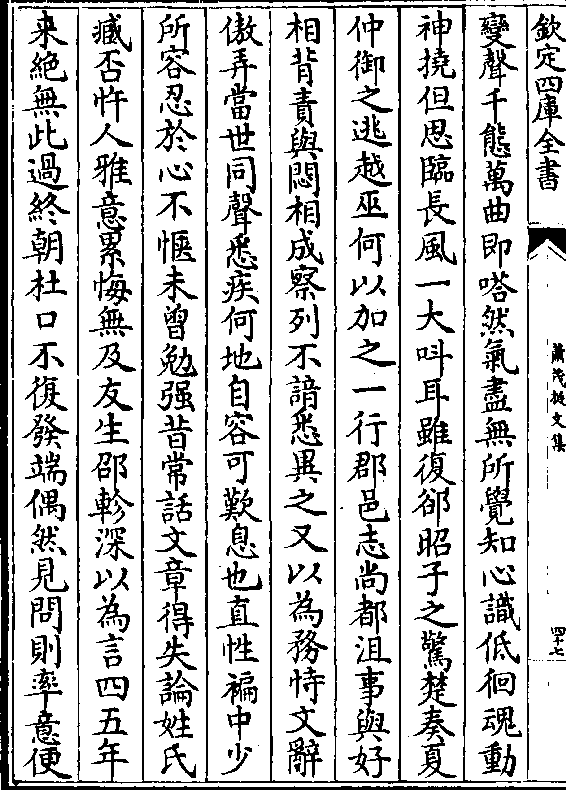 欽定四庫全書
蕭茂挺文集
四十七
變聲千態萬曲即嗒然氣盡無所覺知心識低徊魂動
神撓但思臨長風一大呌耳雖復郤昭子之驚楚奏夏
仲御之逃越巫何以加之一行郡邑志尚都沮事與好
相背責與悶相成察列不諳悉異之又以為務恃文辭
傲弄當世同聲悉疾何地自容可歎息也直性褊中少
所容忍於心不愜未曾勉强昔常話文章得失論姓氏
臧否忤人雅意累悔無及友生邵軫深以為言四五年
来絶無此過終朝杜口不復發端偶然見問則率意便